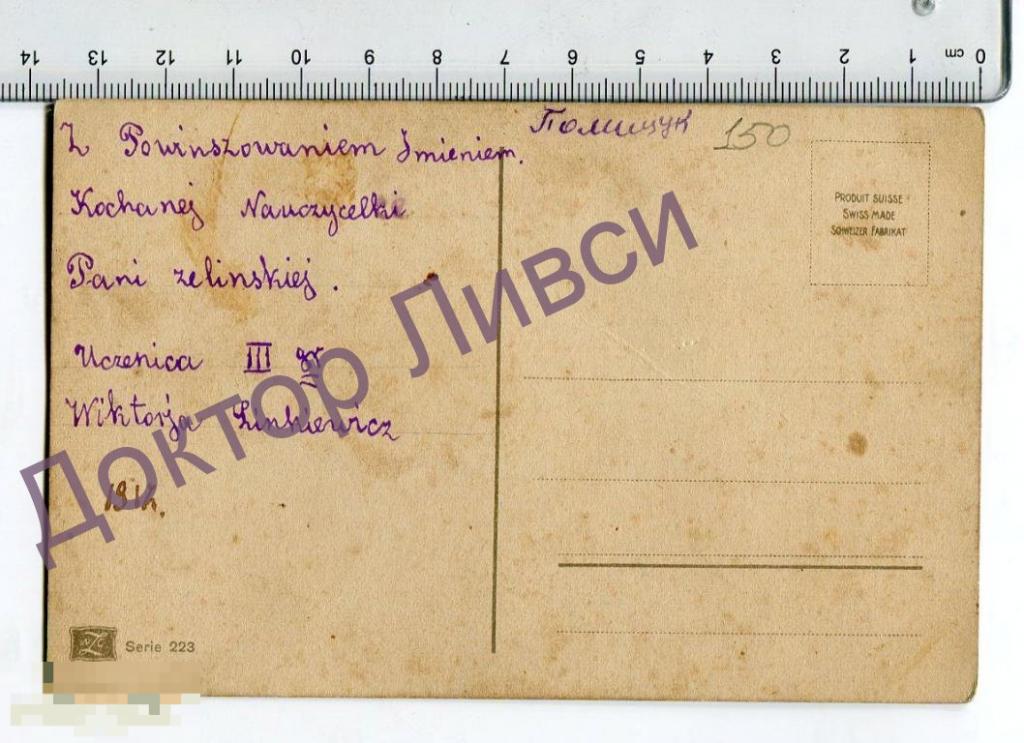 14 13 12 11 10 9 8 7 6 5 4 3 2 1 cm 0
Полищук 150
Z Powinszowaniem Imieniem.
Kochanej Nauczycelki
Pani zelinskiej.
Uczenica III gr
Wiktorja Linkiewicz
PRODUIT SUISSE
SWISS MADE
SCHWEIZER FABRIKAT
Доктор Ливси
Serie 223